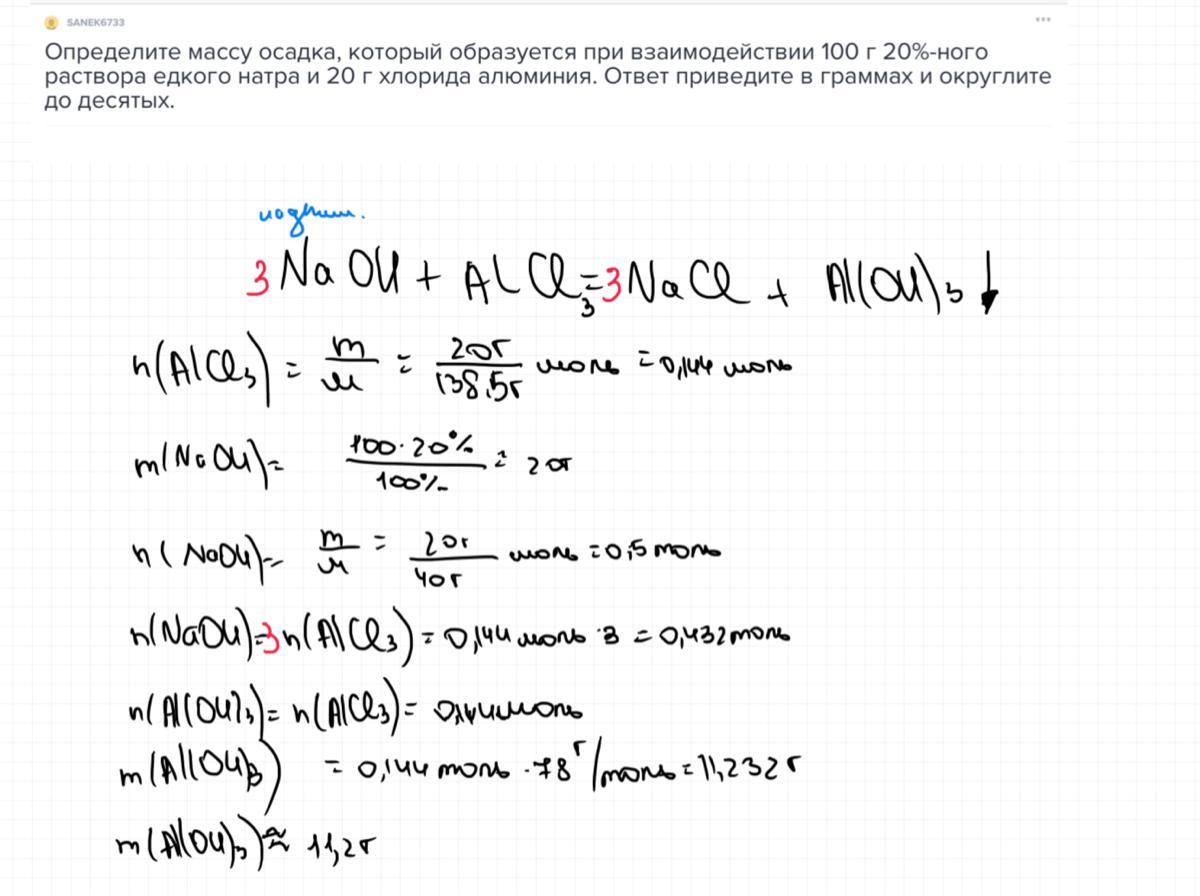 SANEK6733
Определите массу осадка, который образуется при взаимодействии 100 г 20%-ного
раствора едкого натра и 20 г хлорида алюминия. Ответ приведите в граммах и округлите
до десятых.
3NaOH + AlCl₃ = 3NaCl + Al(OH)₃↓
n(AlCl₃) = m/M = 20г/138,5г моль = 0,144 моль
m(NaOH) = 100·20%/100% = 20г
n(NaOH) = m/M = 20г/40г моль = 0,5 моль
n(NaOH) = 3n(AlCl₃) = 0,144 моль · 3 = 0,432 моль
n(Al(OH)₃) = n(AlCl₃) = 0,144 моль
m(Al(OH)₃) = 0,144 моль · 78 г/моль = 11,232 г
m(Al(OH)₃) ≈ 11,2г